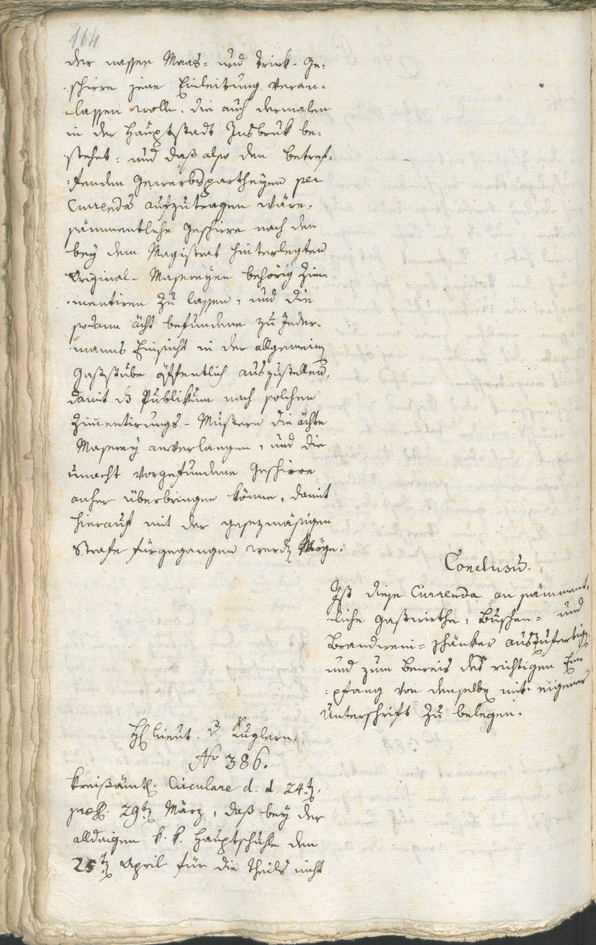 164
der nassen Maas- und Trink-Ge-
schirre jene Einleitung veran-
lassen wolle, die auch dermalen
in der Hauptstadt Insbruk be-
stehet: und daß also den betref-
fenden Gewerbspartheyen per
Currenda aufzutragen wäre,
sämmentliche Geschirre nach den
bey dem Magistrat hinterlegten
Original-Massereyen behörig Zim-
mentiren zu lassen, und die
sodann ächt befundene zu Jeder-
manns Einsicht in der allgemein
Gaststube öffentlich auszustellen,
damit das Publikum nach solchen
Zimentirungs-Mustern die ächte
Masserey anverlangen, und die
unächt vorgefundene Geschirre
anher überbringen könne, damit
hierauf mit der gesezmäßigen
Strafe fürgegangen werden möge.
Conclusum.
Ist diese Currenda an sämment-
liche Gastwirthe, Buschen- und
Brandwein-Schänker auszufertigen
und zum Beweis des richtigen Em-
pfang von denselben mit eigener
Unterschrift zu belegen.
H. Lieut. v. Kuglern
No 386.
Kreißämtl. Circulare d. d. 24t
praes. 29t März, daß bey der
alldaigen k. k. Hauptschule den
25t April für die theils nicht